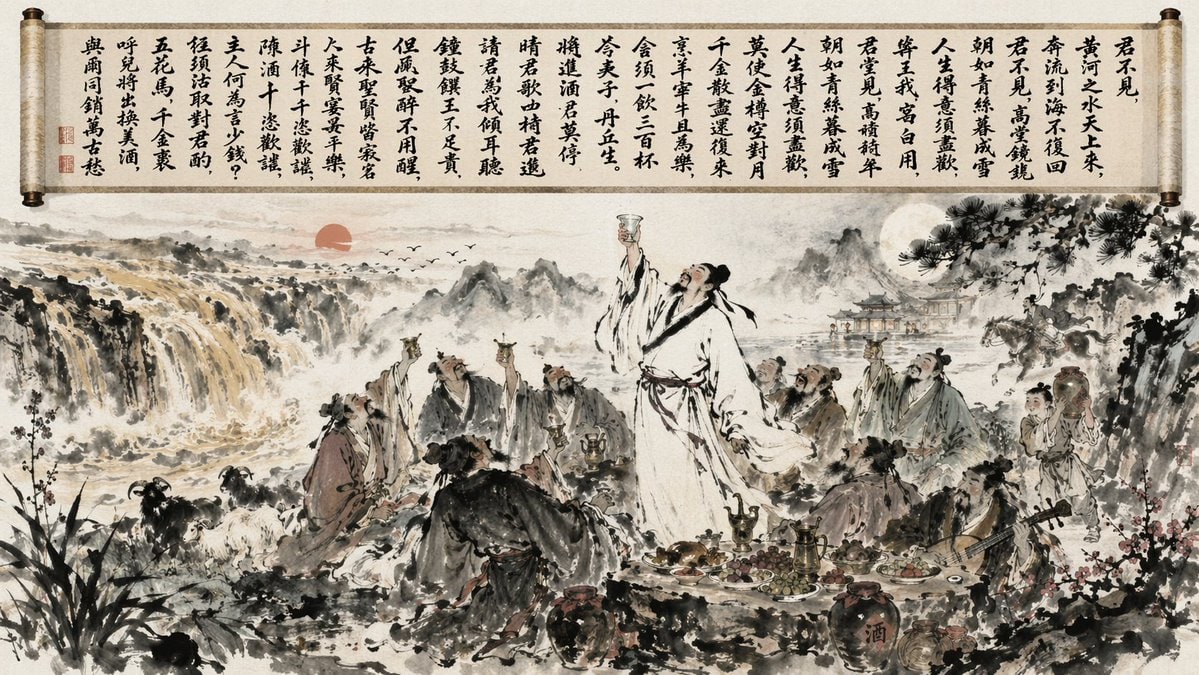 君不見,
黃河之水天上來,
奔流到海不復回
君不見,高堂鏡鏡
朝如青絲暮成雪
人生得意須盡歡,
王我,宮白用,
君堂見,高晴綺年
朝如青絲暮成雪
人生得意須盡歡,
莫使金樽空對月
千金散盡還復來
烹羊宰牛且為樂,
會須一飲三百杯
岑夫子,丹丘生。
將進酒君莫停
晴君歌曲椅君進
請君為我傾耳聽
鐘鼓饌王不足貴,
但風馭醉不用醒,
古来聖賢皆寂客
來賢宴平樂,
斗傢千千恣歡謔,
陳酒十恣歡謔,
主人何為言少錢?
徑須沽取對君酌,
五花馬,千金裘
呼兒將出換美酒,
與爾同銷萬古愁
酒